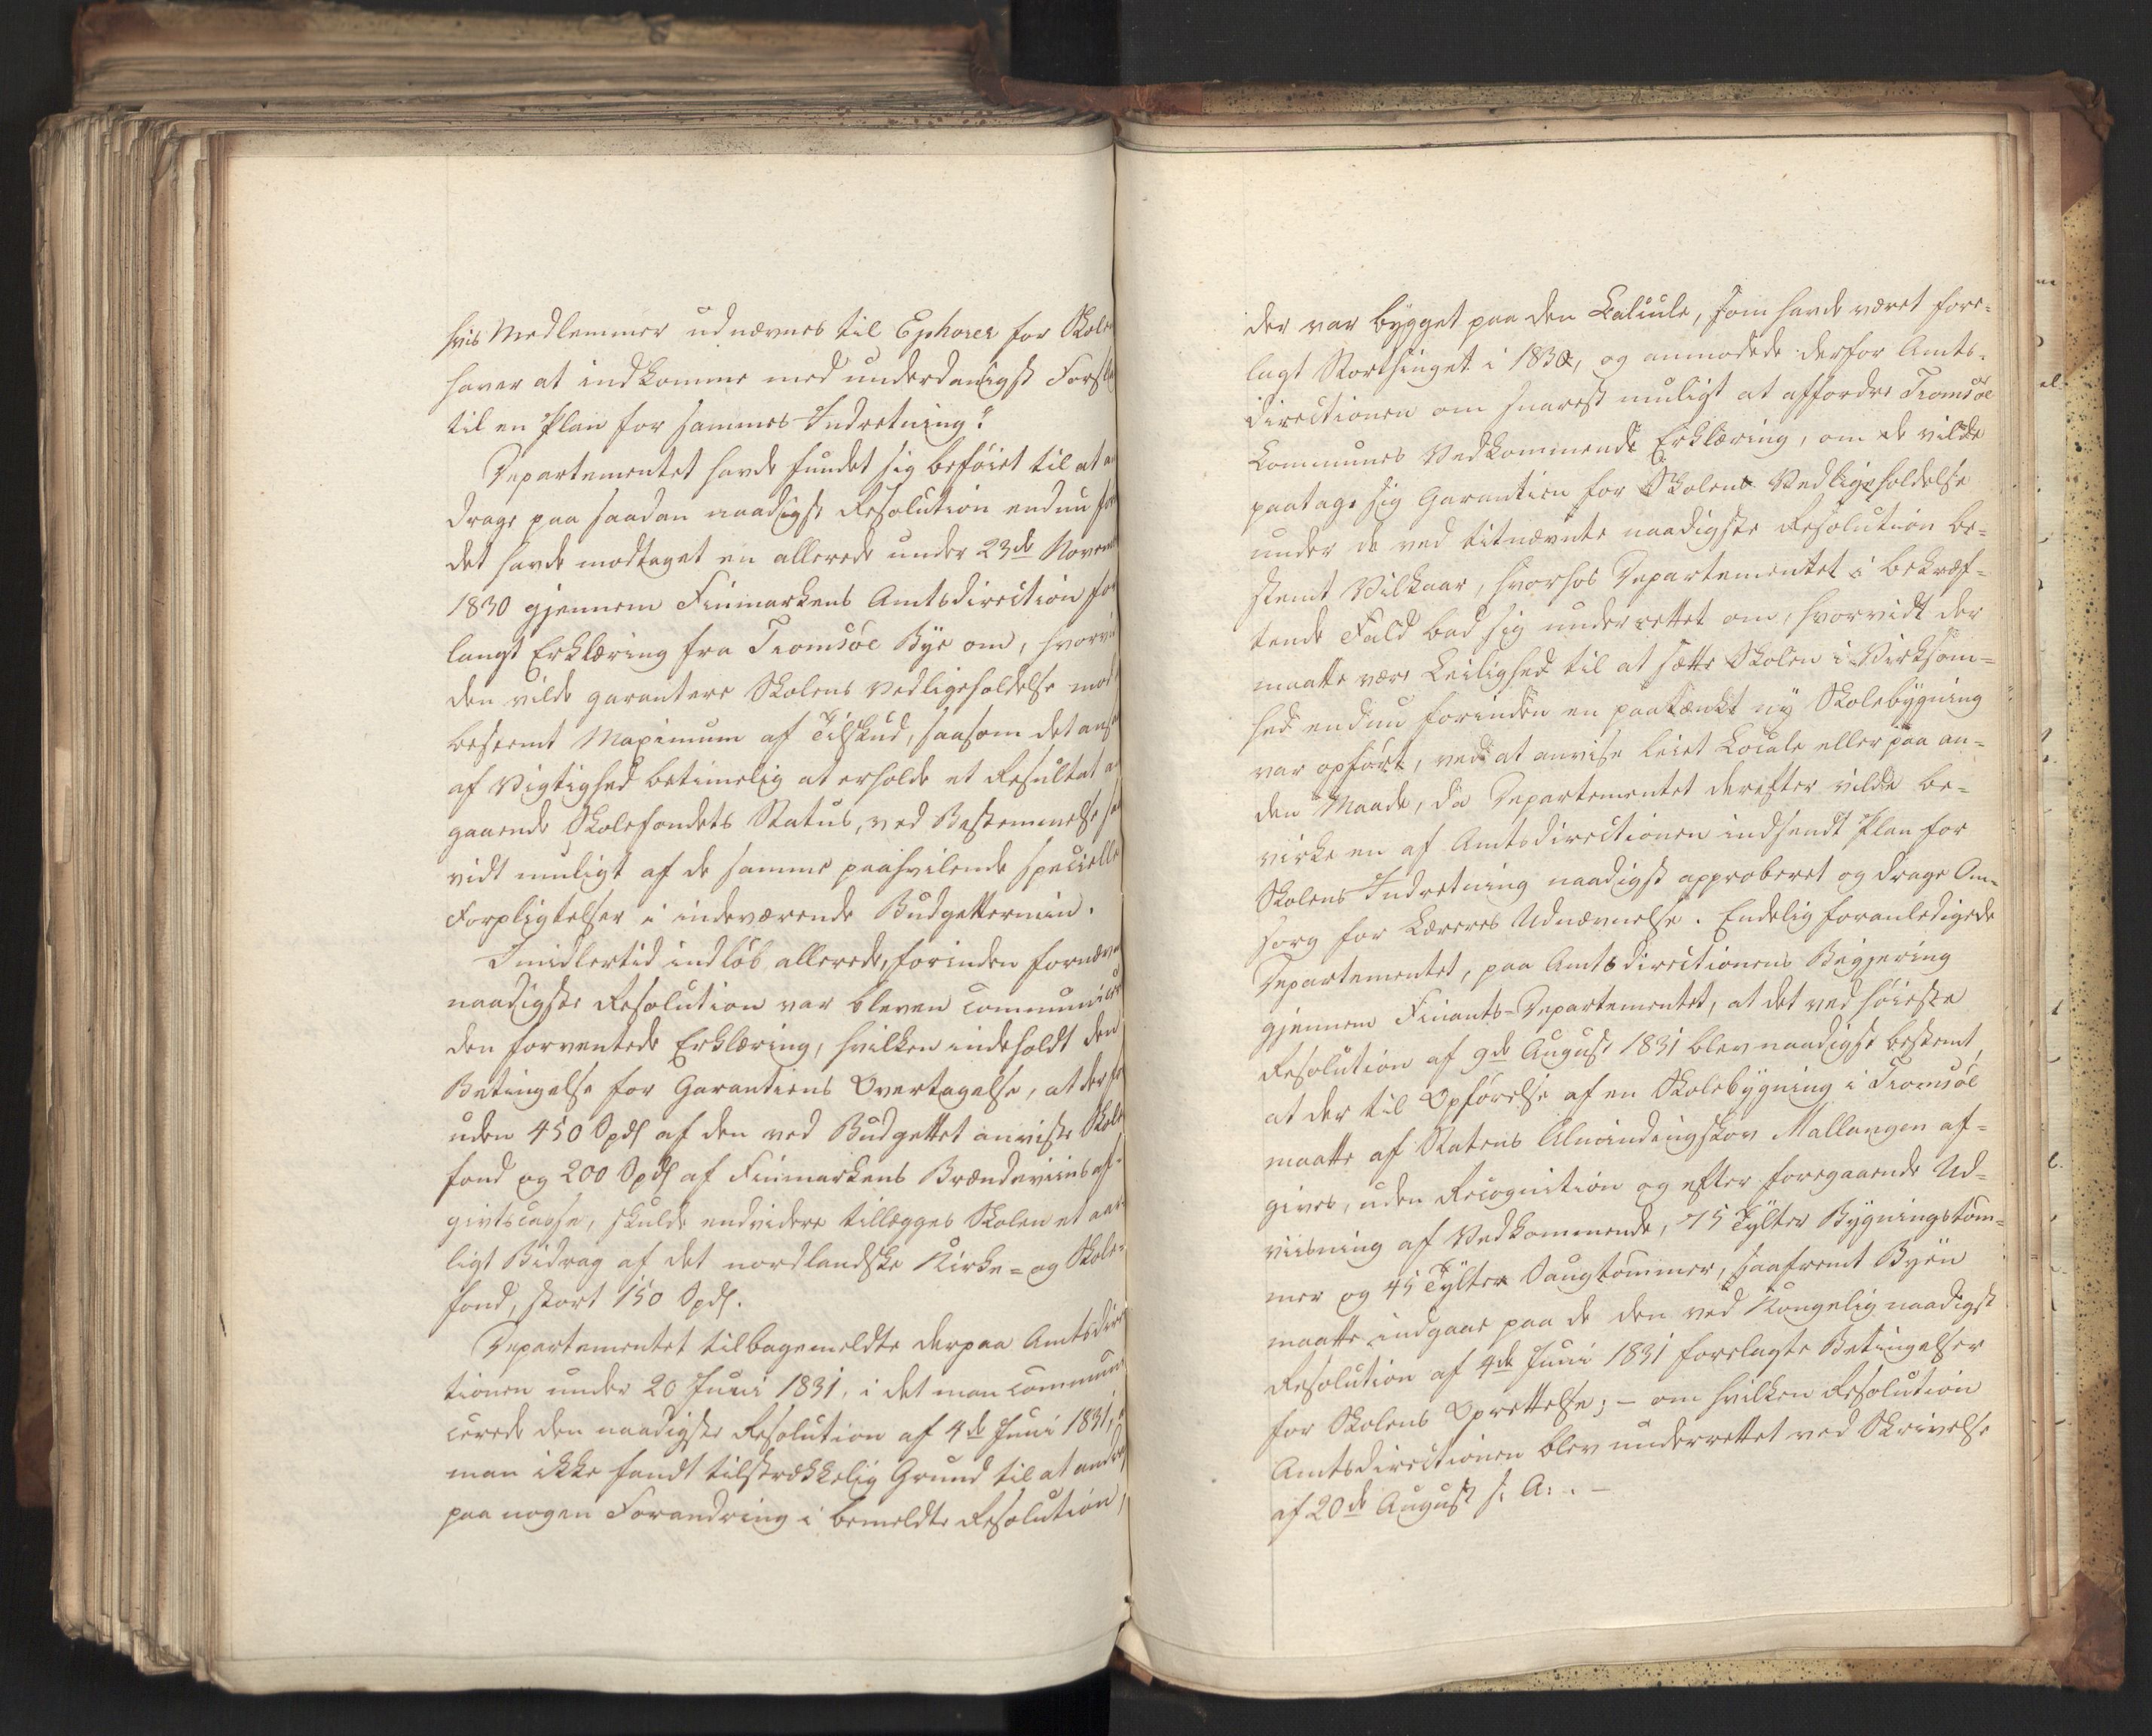 hvis Medlemmer udnævnes til Ephorer for Skolen
haver at indkomme med underdanigst Forslag
til en Plan for sammes Indretning?
Departementet havde fundet sig beføiet til at an
drage paa saadan naadigst Resolution endnu før
det havde modtaget en allerede under 23de Novem
1830 gjennem Finmarkens Amtsdirection for
langt Erklæring fra Tromsöe Bye om, hvorvi
den vilde garantere Skolens Vedligeholdelse mod
bestemt Maximum af Tilskud, saasom det ansaa
af Vigtighed betimelig at erholde et Resultat an
gaaende Skolefondets Status, ved Bestemmelse saa
vidt muligt af de samme paahvilende specielle
Forpligtelser i indeværende Budgettermin.
Imidlertid indløb allerede, forinden fornævn
naadigste Resolution var bleven communicer
den forventede Erklæring, hvilken indeholdt den
Betingelse for Garantiens Overtagelse, at der for
uden 450 Spd af den ved Budgettet anviste Skole
fond og 200 Spd af Finmarkens Brændeviinsaf-
givtscasse, skulde endvidere tillægges Skolen et aar-
ligt Bidrag af det nordlandske Kirke- og Skole-
fond, stort 150 Spd.
Departementet tilbagemeldte derpaa Amtsdirec
tionen under 20 Juni 1831, i det man communi
cerede den naadigste Resolution af 4de Juni 1831, at
man ikke fandt tilstrækkelig Grund til at andrage
paa nogen Forandring i bemeldte Resolution,
der var bygget paa den Calcule, som havde været fore-
lagt Storthinget i 1830, og anmodede derfor Amts-
directionen om snarest muligt at affordre Tromsöe
Communes Vedkommende Erklæring, om de vilde
paatage sig Garantien for Skolens Vedligeholdelse
under de ved titnævnte naadigste Resolution be-
stemt Vilkaar, hvorhos Departementet i bekræf-
tende Fald bad sig underrettet om, hvorvidt der
maatte være Leilighed til at sætte Skolen i Virksom-
hed endnu forinden en paatænkt ny Skolebygning
var opført, ved at anvise leiet Locale eller paa an-
den Maade, da Departementet derefter vilde be-
virke en af Amtsdirectionen indsendt Plan for
Skolens Indretning naadigst approberet og drage Om-
sorg for Læreres Udnævnelse. Endelig foranledigede
Departementet, paa Amtsdirectionens Begjering
gjennem Finants-Departementet, at det ved høieste
Resolution af 9de August 1831 blev naadigst bestemt,
at der til Opførelse af en Skolebygning i Tromsöe
maatte af Statens Almindingskov Mallangen af-
gives, uden Recognition og efter foregaaende Ud-
viisning af Vedkommende, 75 Tylter Bygningstøm-
mer og 45 Tylter Saugtømmer, saafremt Byen
maatte indgaae paa de den ved Kongelig naadigst
Resolution af 4de Juni 1831 forelagte Betingelser
for Skolens Oprettelse; - om hvilken Resolution
Amtsdirectionen blev underrettet ved Skrivelse
af 20de August s. A. . -